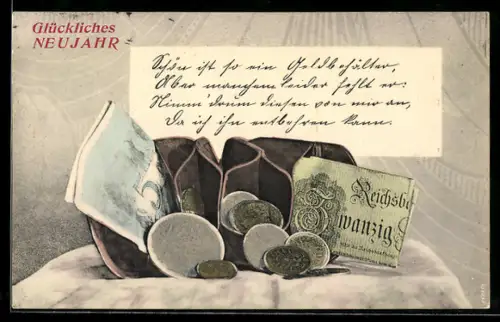 Glückliches
NEUJAHR
Schön ist so ein Geldbehälter,
Aber manchem leider fehlt er:
Nimm' drum diesen von mir an,
Da ich ihn entbehren kann.
5
Reichsb
Zwanzig